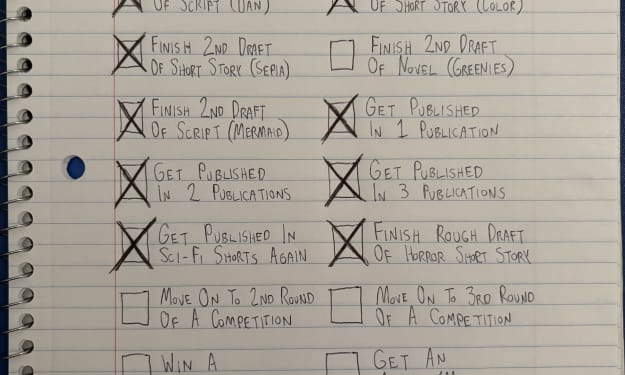 OF SCRIPT (DAN)
OF SHORT STORY (COLOR)
FINISH 2ND DRAFT
OF SHORT STORY (SEPIA)
FINISH 2ND DRAFT
OF NOVEL (GREENIES)
FINISH 2ND DRAFT
OF SCRIPT (MERMAID)
GET PUBLISHED
IN 1 PUBLICATION
GET PUBLISHED
IN 2 PUBLICATIONS
GET PUBLISHED
IN 3 PUBLICATIONS
GET PUBLISHED IN
SCI-FI SHORTS AGAIN
FINISH ROUGH DRAFT
OF HORROR SHORT STORY
MOVE ON TO 2ND ROUND
OF A COMPETITION
MOVE ON TO 3RD ROUND
OF A COMPETITION
WIN A
GET AN